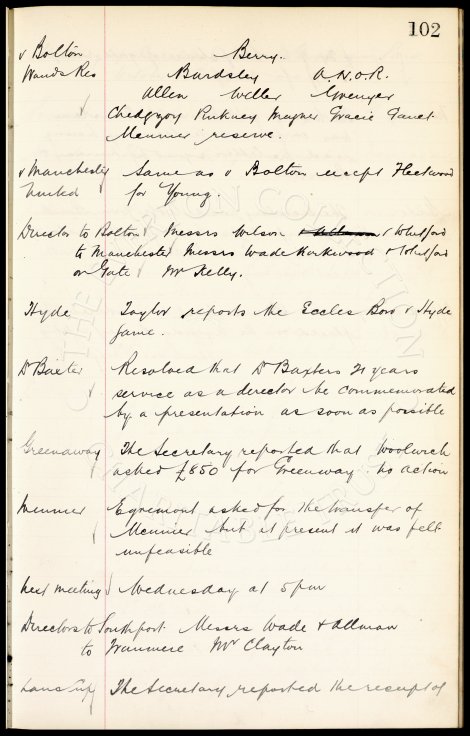 102
v Bolton Berry.
Wands Res Bardsley A.N.O.R.
Allen Weller Grenyer
Chedgzoy Pinkney Magner Gracie Fanet
Meunier reserve.
v Manchester Same as v Bolton except Fleetwood
United for Young.
Director to Bolton Messrs Wilson & Whitford
to Manchester Messrs Wade Kirkwood & Whitford
on Gate Mr Kelly.
Hyde Taylor reports the Eccles Boro v Hyde
game.
Dr Baxter Resolved that Dr Baxters 21 years
service as a director be commemorated
by a presentation as soon as possible
Greenaway The Secretary reported that Woolwich
asked £850 for Greenway. No action
Meunier Egremont asked for the transfer of
Meunier but at present it was felt
unfeasible
Next meeting Wednesday at 5pm
Directors to Southport Messrs Wade & Allman
to Mr Clayton
Lancs Cup The Secretary reported the receipt of